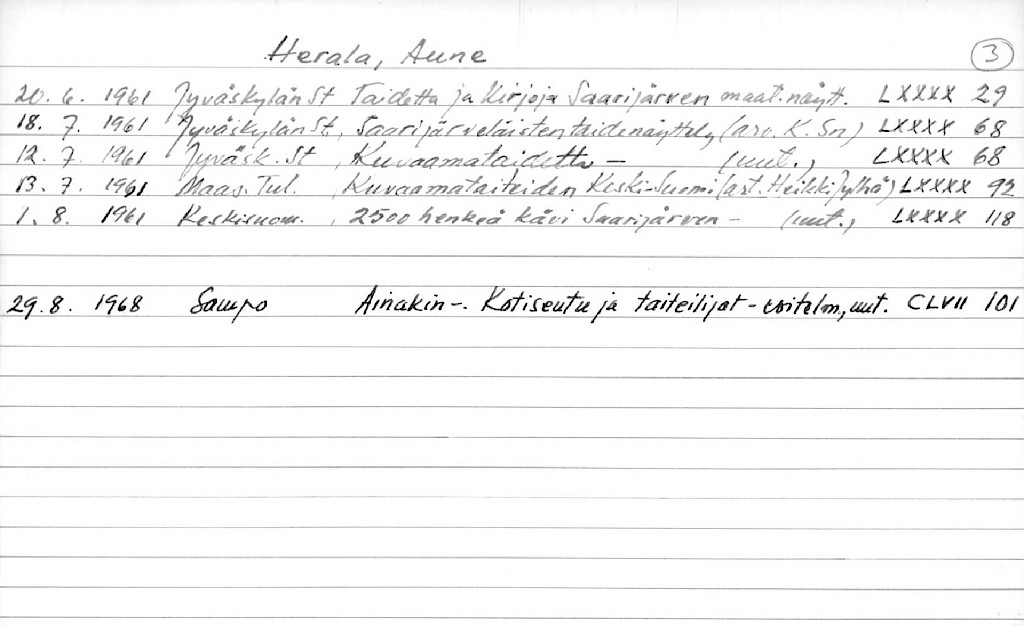 Herala, Aune
3
20. 6. 1961 Jyväskylän St Taidetta ja Kirjoja Saarijärven maat.näytt. LXXXX 29
18. 7. 1961 Jyväskylän St, Saarijärveläisten taidenäyttely (arv. K. Sn) LXXXX 68
12. 7. 1961 Jyväsk. St, Kuvaamataidetta – (uut.) LXXXX 68
13. 7. 1961 Maas. Tul. , Kuvaamataiteiden Keski-Suomi (art. Heikki Jylhä) LXXXX 92
1. 8. 1961 Keskisuom. , 2500 henkeä kävi Saarijärven – (uut.) LXXXX 118
29. 8. 1968 Sampo Ainakin –. Kotiseutu ja taiteilijat – uut. CLVII 101